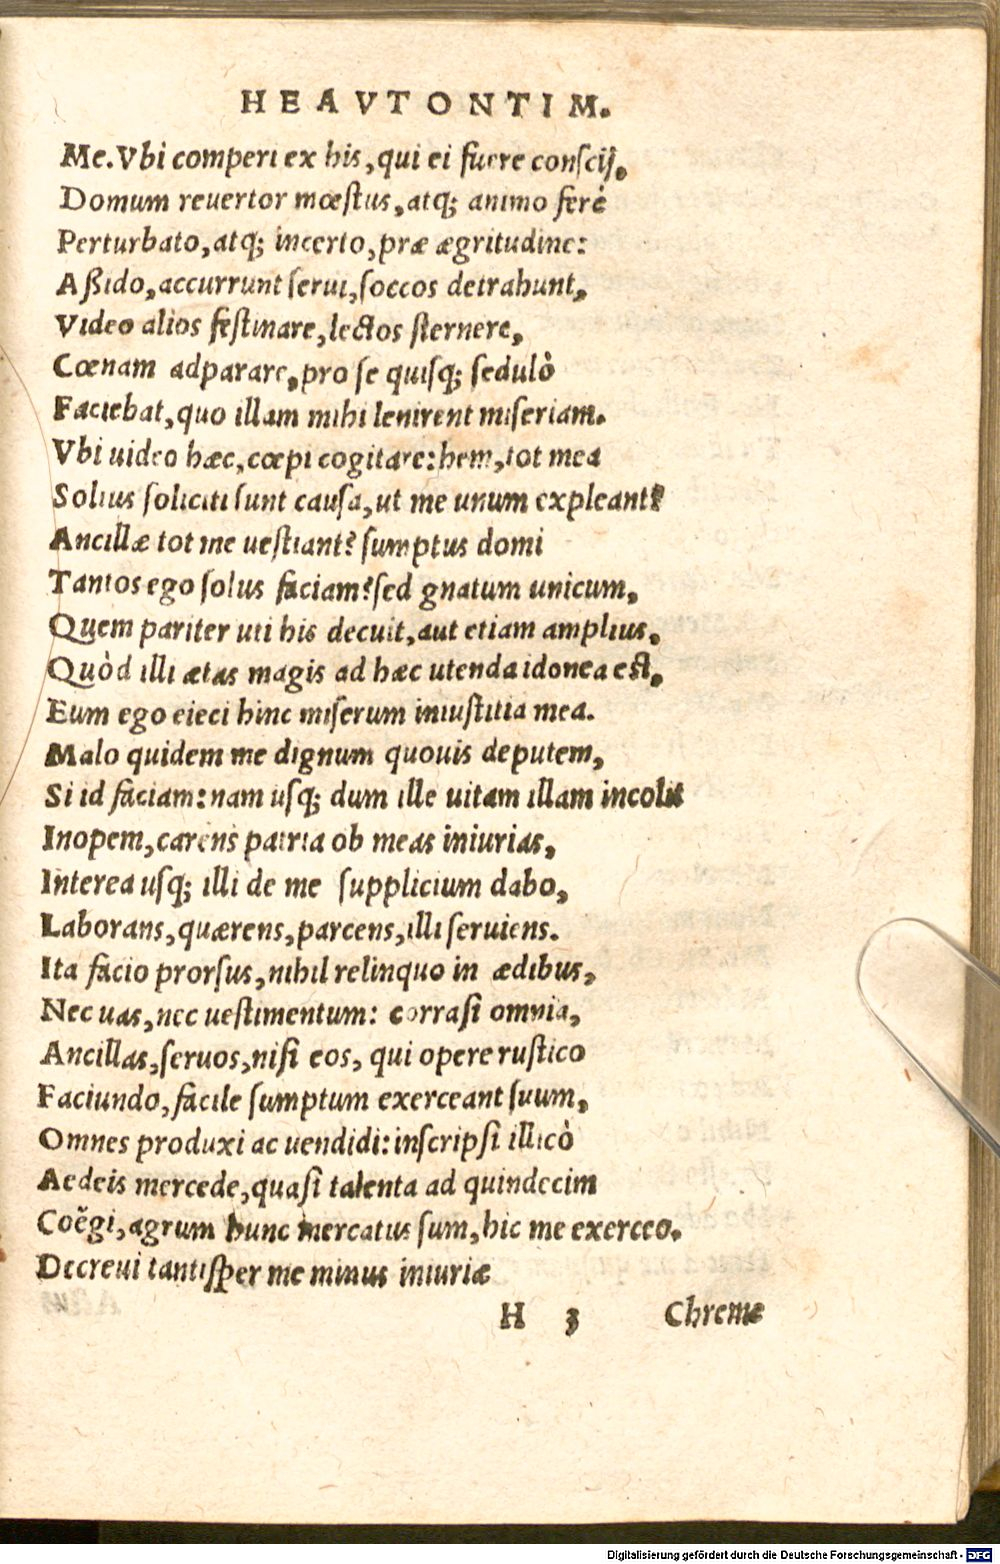 HEAVTONTIM.
Me. Vbi comperi ex his, qui ei fuere conscij,
Domum reuertor mœstus, atq; animo ferè
Perturbato, atq; incerto, præ ægritudine:
Aßido, accurrunt serui, soccos detrahunt,
Video alios festinare, lectos sternere,
Cœnam adparare, pro se quisq; sedulò
Faciebat, quo illam mihi lenirent miseriam.
Vbi uideo hæc, cœpi cogitare: hem, tot mea
Solius soliciti sunt causa, ut me unum expleant?
Ancillæ tot me uestiant? sumptus domi
Tantos ego solus faciam? sed gnatum unicum,
Quem pariter uti his decuit, aut etiam amplius,
Quòd illi ætas magis ad hæc utenda idonea est,
Eum ego eieci hinc miserum iniustitia mea.
Malo quidem me dignum quouis deputem,
Si id faciam: nam usq; dum ille uitam illam incolit
Inopem, carens patria ob meas iniurias,
Interea usq; illi de me supplicium dabo,
Laborans, quærens, parcens, illi seruiens.
Ita facio prorsus, nihil relinquo in ædibus,
Nec uas, nec uestimentum: corrasi omnia,
Ancillas, seruos, nisi eos, qui opere rustico
Faciundo, facile sumptum exerceant suum,
Omnes produxi ac uendidi: inscripsi illicò
Aedeis mercede, quasi talenta ad quindecim
Coëgi, agrum hunc mercatus sum, hic me exerceo.
Decreui tantisper me minus iniuriæ
H 3 Chreme
Digitalisierung gefördert durch die Deutsche Forschungsgemeinschaft - DFG